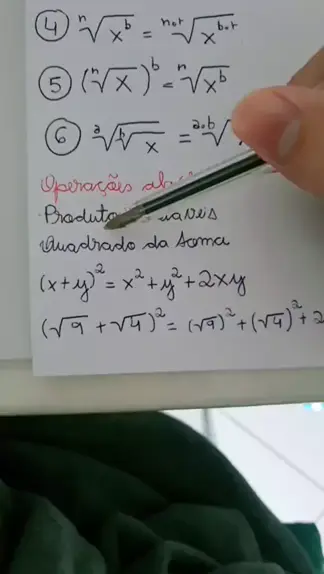 ④ ⁿ√x^b = ⁿ·ʳ√x^(b·r)
⑤ (ⁿ√x)^b = ⁿ√x^b
⑥ ᵃ√ᵇ√x = ᵃ·ᵇ√
Operações
Produto
Quadrado da Soma
(x+y)² = x² + y² + 2xy
(√9 + √4)² = (√9)² + (√4)² + 2